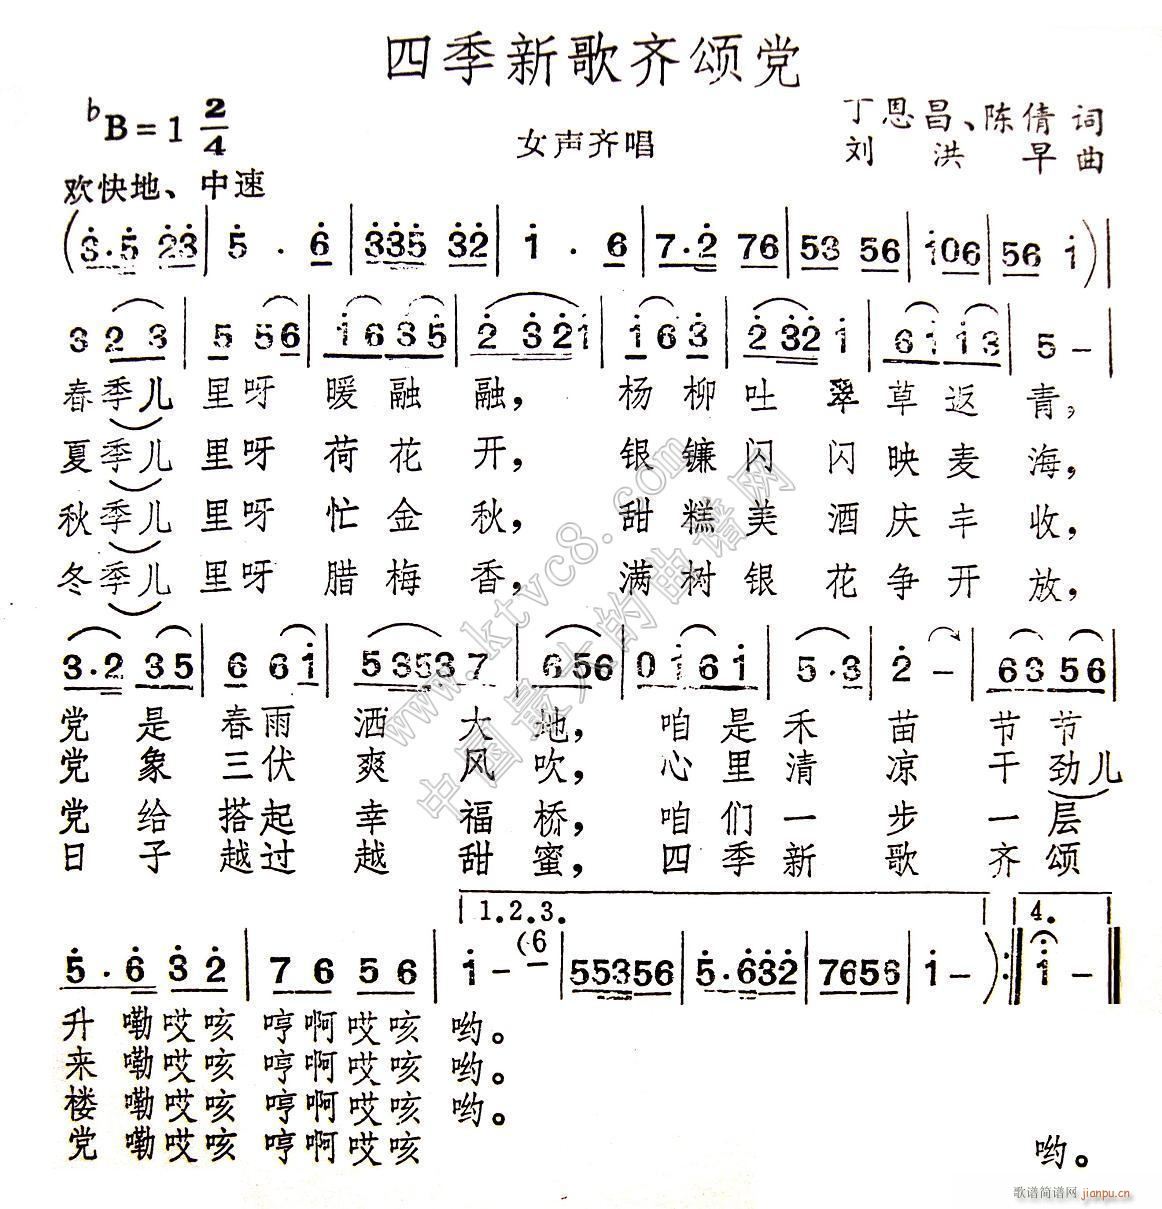 四季新歌齐颂党
♭B=1 2/4
女声齐唱
丁恩昌、陈倩 词
刘洪早 曲
欢快地、中速
(3·5 23|5·6|335 32|1·6|7·2 76|53 56|106|56 1)|
3 23|5 56|1635|2 321|16 3|2321|6113|5 -|
春季儿里呀暖融融，杨柳吐翠草返青，
夏季儿里呀荷花开，银镰闪闪映麦海，
秋季儿里呀忙金秋，甜糕美酒庆丰收，
冬季儿里呀腊梅香，满树银花争开放，
3·2 35|6 61|53537|656|0161|5·3|2 -|6356|
党是春雨洒大地，咱是禾苗节节
党象三伏爽风吹，心里清凉干劲儿
党给搭起幸福桥，咱们一步一层
日子越过越甜蜜，四季新歌齐颂
1.2.3. 4.
5·6 32|76 56|1 - (6|55356|5·632|7656|1 -):‖1 -‖
升嘞哎咳哼啊哎咳哟。
来嘞哎咳哼啊哎咳哟。
楼嘞哎咳哼啊哎咳哟。
党嘞哎咳哼啊哎咳 哟。
www.ktvc8.com
中国最大的曲谱网
歌谱简谱网 jianpu.cn